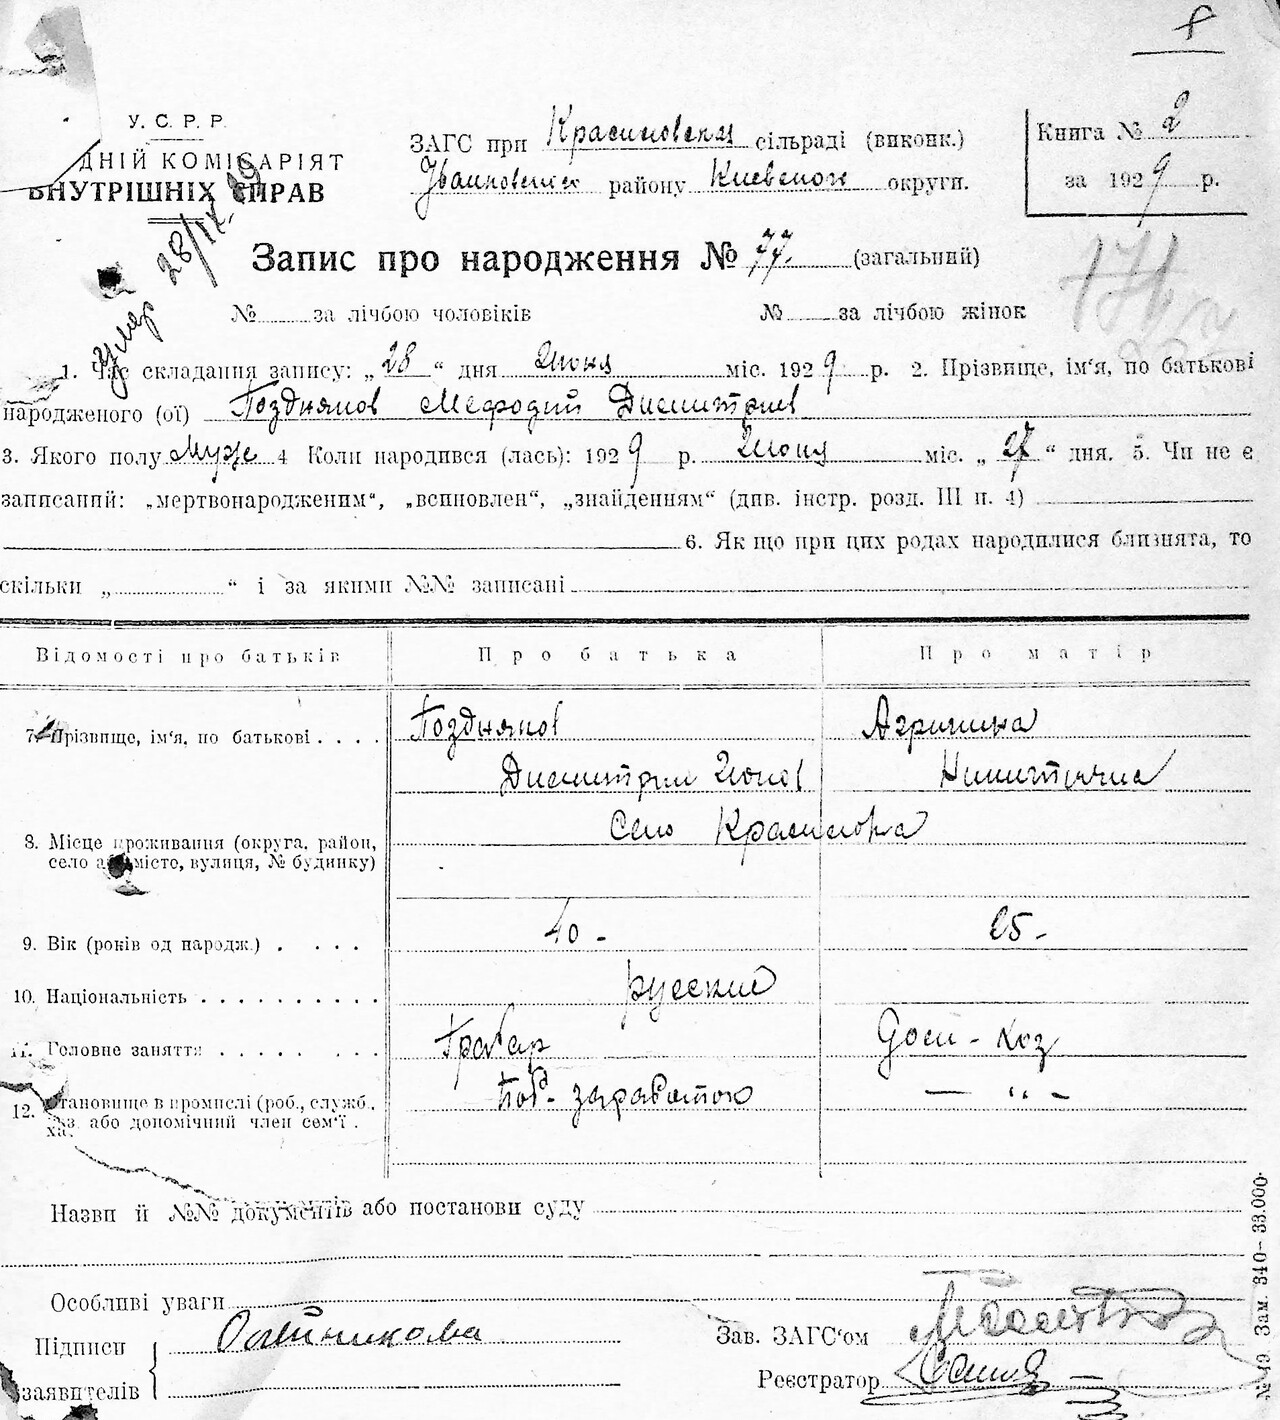 У. С. Р. Р.
ДНІЙ КОМІСАРІЯТ
ВНУТРІШНІХ СПРАВ
ЗАГС при Красиловской сільраді (виконк.)
Іванковского району Киевской округи.
Книга № 2
за 1929 р.
умер 28/IX. 29
Запис про народження № 77. (загальний)
№ за лічбою чоловіків № за лічбою жінок
1. Час складання запису: „28“ дня Июня міс. 1929 р. 2. Прізвище, ім'я, по батькові
народженого (ої) Поздняков Мефодий Дмитриев
3. Якого полу Муж 4 Коли народився (лась): 1929 р. Июня міс. „27“ дня. 5. Чи не є
записаний: „мертвонародженим“, „всиновлен“, „знайденням“ (див. інстр. розд. III п. 4)
6. Як що при цих родах народилися близнята, то
скільки „ “ і за якими №№ записані
Відомості про батьків Про батька Про матір
7. Прізвище, ім'я, по батькові Поздняков Агрипина
Дмитрий Ионов Никитична
8. Місце проживання (округа, район, село або місто, вулиця, № будинку) Село
9. Вік (років од народж.) 40 - 25 -
10. Національність русские
11. Головне заняття Грабар Дом - хоз
12. Становище в промислі (роб., служб., хаз. або допомічний член сем'ї . - „ -
Назви й №№ документів або постанови суду
Особливі уваги
Підписи
заявителів
Зав. ЗАГС'ом
Реєстратор
№ 49. Зам. 340– 33.000.